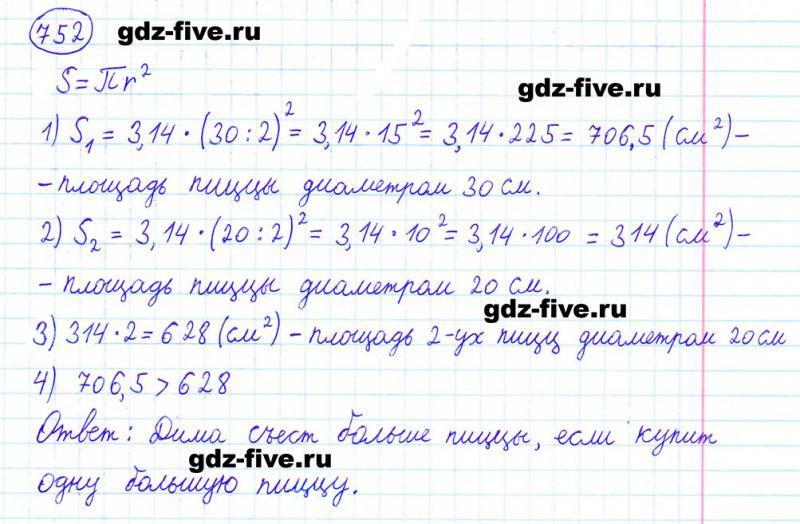 752 gdz-five.ru
S=πr² gdz-five.ru
1) S₁ = 3,14 · (30 : 2)² = 3,14 · 15² = 3,14 · 225 = 706,5 (см²) –
– площадь пиццы диаметрам 30 см.
2) S₂ = 3,14 · (20 : 2)² = 3,14 · 10² = 3,14 · 100 = 314 (см²) –
– площадь пиццы диаметрам 20 см.
gdz-five.ru
3) 314 · 2 = 628 (см²) – площадь 2-ух пицц диаметрам 20 см
4) 706,5 > 628
Ответ: Дима съест больше пиццы, если купит
gdz-five.ru
одну большую пиццу.